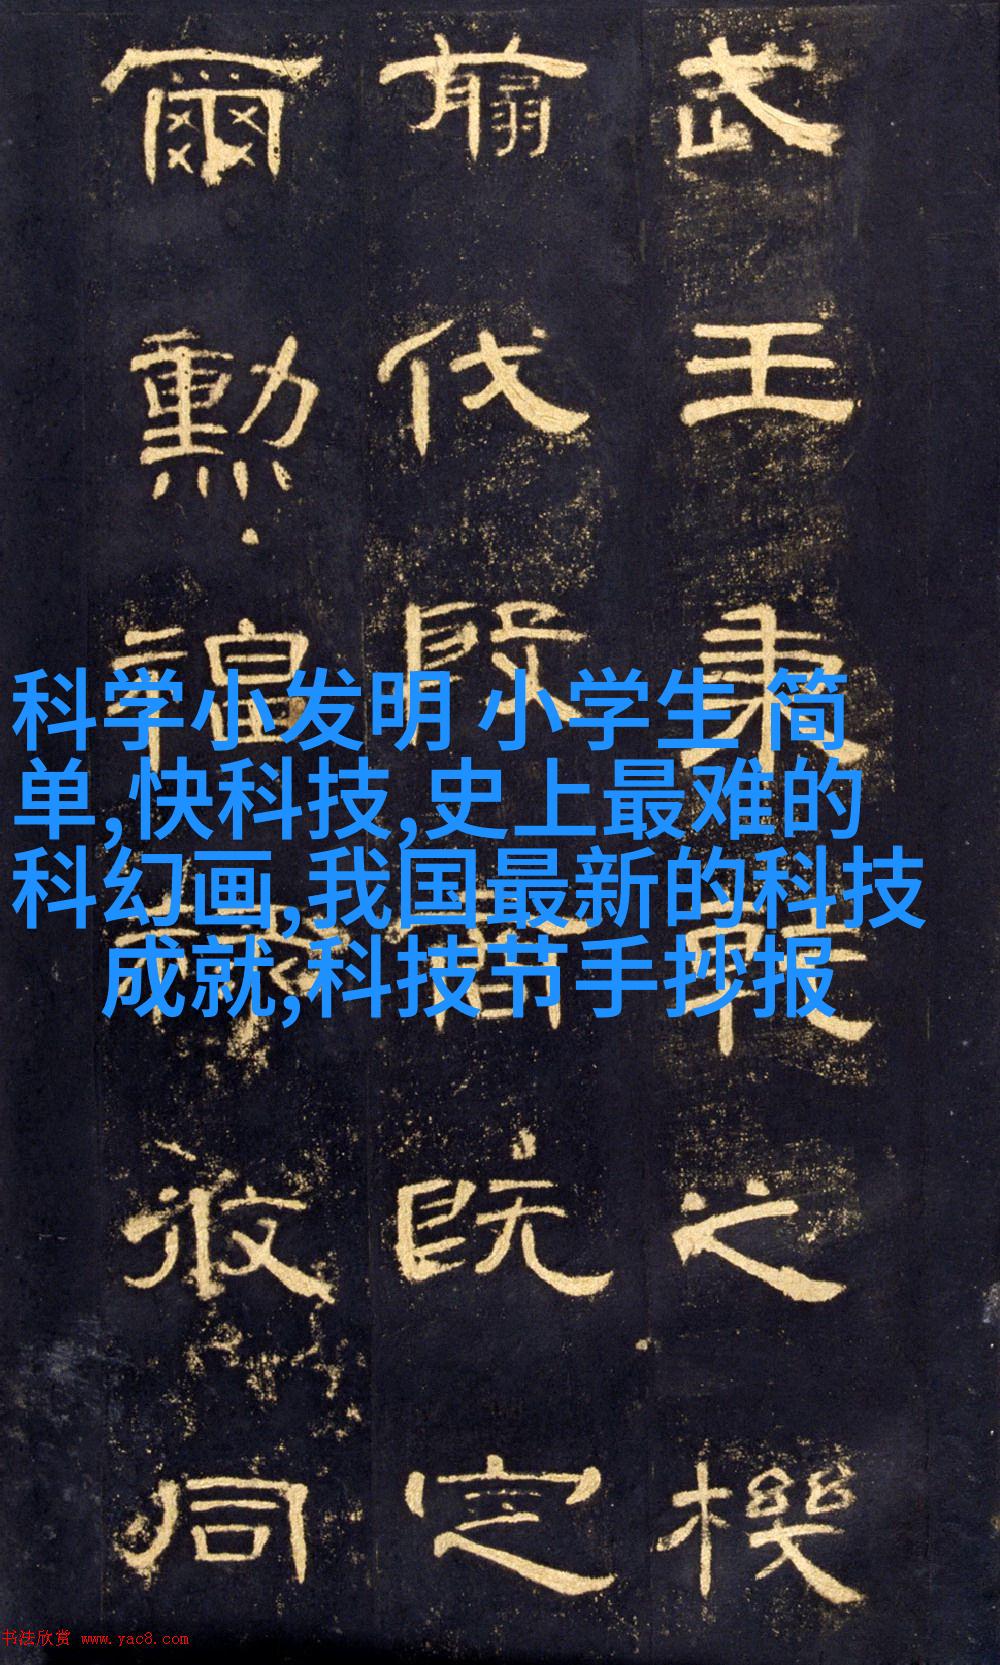 武王秉戰之機
翦伐殷商既定
爾勳福祿攸同
科学小发明 小学生 简
单,快科技,史上最难的
科幻画,我国最新的科技
成就,科技节手抄报
书法欣赏 www.yac8.com